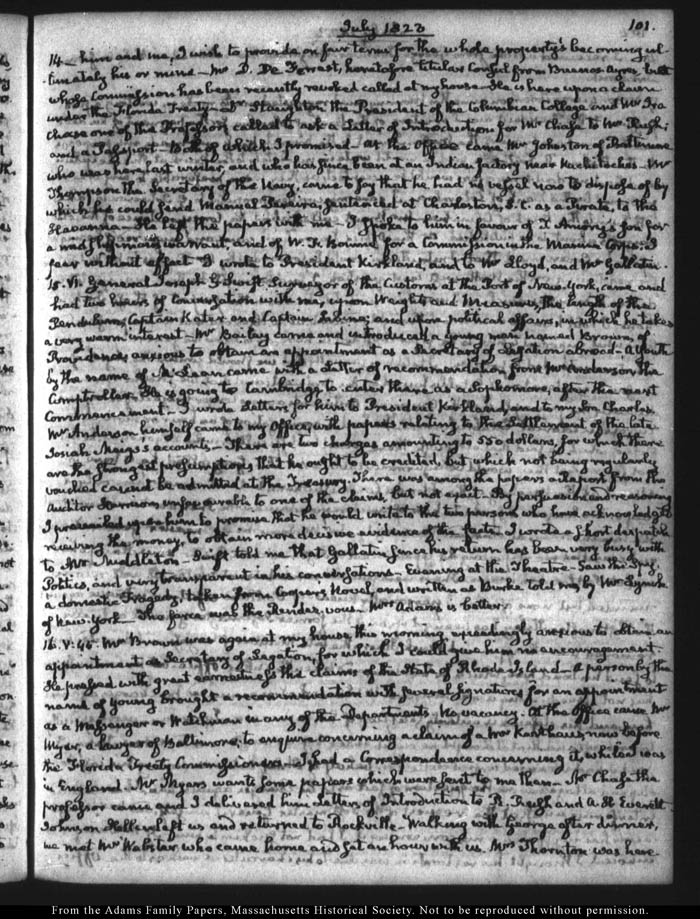 July 1823
101.
14— him and me, I wish to provide on fair terms for the whole property's becoming ul-
timately his or mine— Mr D. De Forrest, heretofore titular Consul from Buenos Ayres, but
whose Commission has been recently revoked called at my house— He is here upon a claim
under the Florida Treaty— Dr Staughton the President of the Columbian College and Mr Ira
Chase one of the Professors called to ask a Letter of Introduction for Mr Chase to Mr Rush;
and a Passport— Both of which I promised— At the Office came Mr Johnston of Baltimore
who was here last winter, and who has since been at an Indian factory near Nachitoches— Mr
Thompson the Secretary of the Navy, came to say that he had no vessel now to dispose of by
which he could send Manuel, sentenced at Charleston, S.C. as a Pirate, to the
Havanna— He left the papers with me— I spoke to him in favour of I. Amory's son for
a midshipman's warrant, and of W. K. for a Commission in the Marine Corps: I
fear without effect— I wrote to President Kirkland, and to Mr Lloyd, and Mr Gallatin.
15. VI. General Joseph G. Swift Surveyor of the Customs at the Port of New-York, came and
had two hours of conversation with me, upon Weights and Measures, the length of the
Pendulum, Captain Kater and Captain Sabine; and upon political affairs, in which he takes
a very warm interest— Mr Bailey came and introduced a young man named Brown, of
Providence, anxious to obtain an appointment as a Secretary of Legation abroad— A youth
by the name of McLean came with a Letter of recommendation from Mr Anderson the
Comptroller. He is going to Cambridge to enter there as a Sophomore, after the next
Commencement— I wrote Letters for him to President Kirkland, and to my Son Charles.
Mr Anderson himself came to my Office, with papers relating to the Settlement of the late
Josiah Meigs's accounts— There are two charges amounting to 550 dollars, for which there
are the strongest presumptions that he ought to be credited, but which not being regularly
vouched cannot be admitted at the Treasury. There was among the papers a Report from the
Auditor Harrison, unfavourable to one of the claims, but not exact— By persuasion and reasoning
I prevailed upon him to promise that he would write to the two persons who have acknowledged
receiving the money, to obtain more decisive evidence of the facts. I wrote a short despatch
to Mr Middleton— Swift told me that Gallatin since his return has been very busy with
Politics, and very transparent in his conversations— Evening at the Theatre— Saw the Spy,
a domestic Tragedy, taken from Coopers Novel, and written as Burke told me by Mr Lynch
of New-York— The farce was the Rendez-vous— Mrs Adams is better.
16. V:45. Mr Brown was again at my house this morning, exceedingly anxious to obtain an
appointment as Secretary of Legation, for which I could give him no encouragement.
He pressed with great earnestness the claims of the State of Rhode Island— A person by the
name of Young brought a recommendation with several signatures for an appointment
as a Messenger or Watchman in any of the Departments. No vacancy. At the Office came Mr
Myer, a lawyer of Baltimore, to enquire concerning a claim of a Mr Karthaus, now before
the Florida Treaty Commissioners— I had a Correspondence concerning it, while I was
in England. Mr Myers wants some papers which were sent to me then— Mr Chase the
professor came and I delivered him Letters of Introduction to R. Rush and A. H. Everett
Johnson Hellen left us and returned to Rockville— Walking with George after dinner,
we met Mr Webster who came home and sat an hour with us. Mrs Thornton was here.
From the Adams Family Papers, Massachusetts Historical Society. Not to be reproduced without permission.